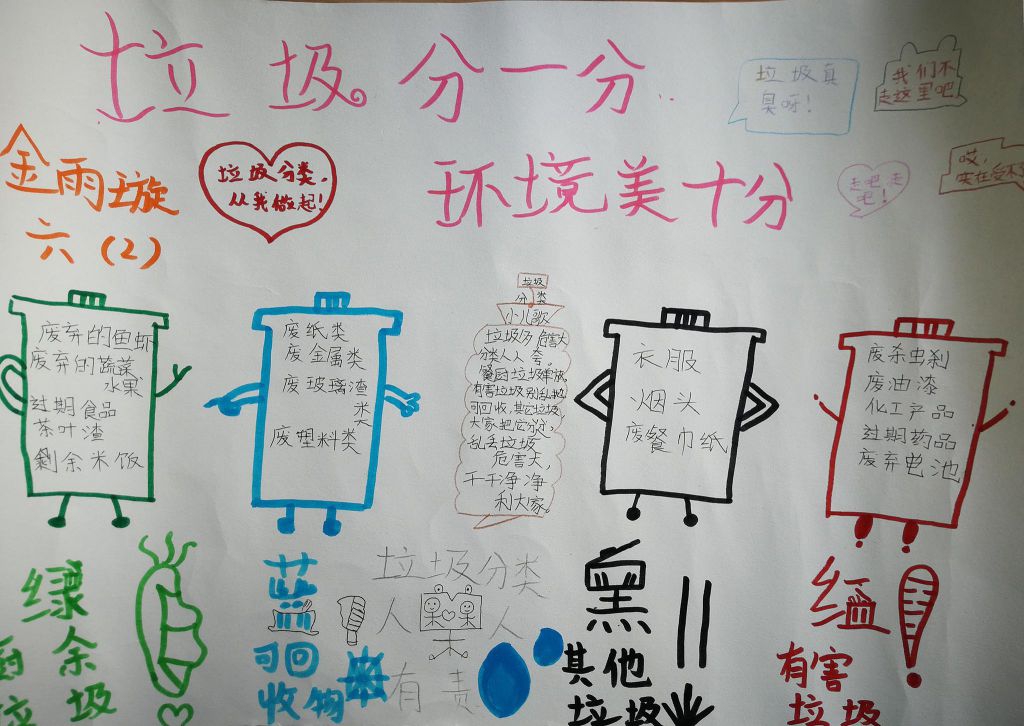 垃圾分一分
环境美十分
垃圾真
臭呀!
我们不
走这里吧
哎,
实在受不
走吧,走
吧!
金雨璇
六(2)
垃圾分类,
从我做起!
废弃的鱼虾
废弃的蔬菜
水果
过期食品
茶叶渣
剩余米饭
废纸类
废金属类
废玻璃渣
类
废塑料类
垃圾
分类
小儿歌
垃圾多 危害大
分类人人夸,
餐厨垃圾单放,
有害垃圾别乱扔
可回收,其它垃圾
大家把它分分,
乱丢垃圾
危害大,
干干净净
利大家。
衣服
烟头
废餐巾纸
废杀虫剂
废油漆
化工产品
过期药品
废弃电池
绿
厨余
垃圾
蓝
可回
收物
垃圾分类
人人
有责
黑
其他
垃圾
红
有害
垃圾